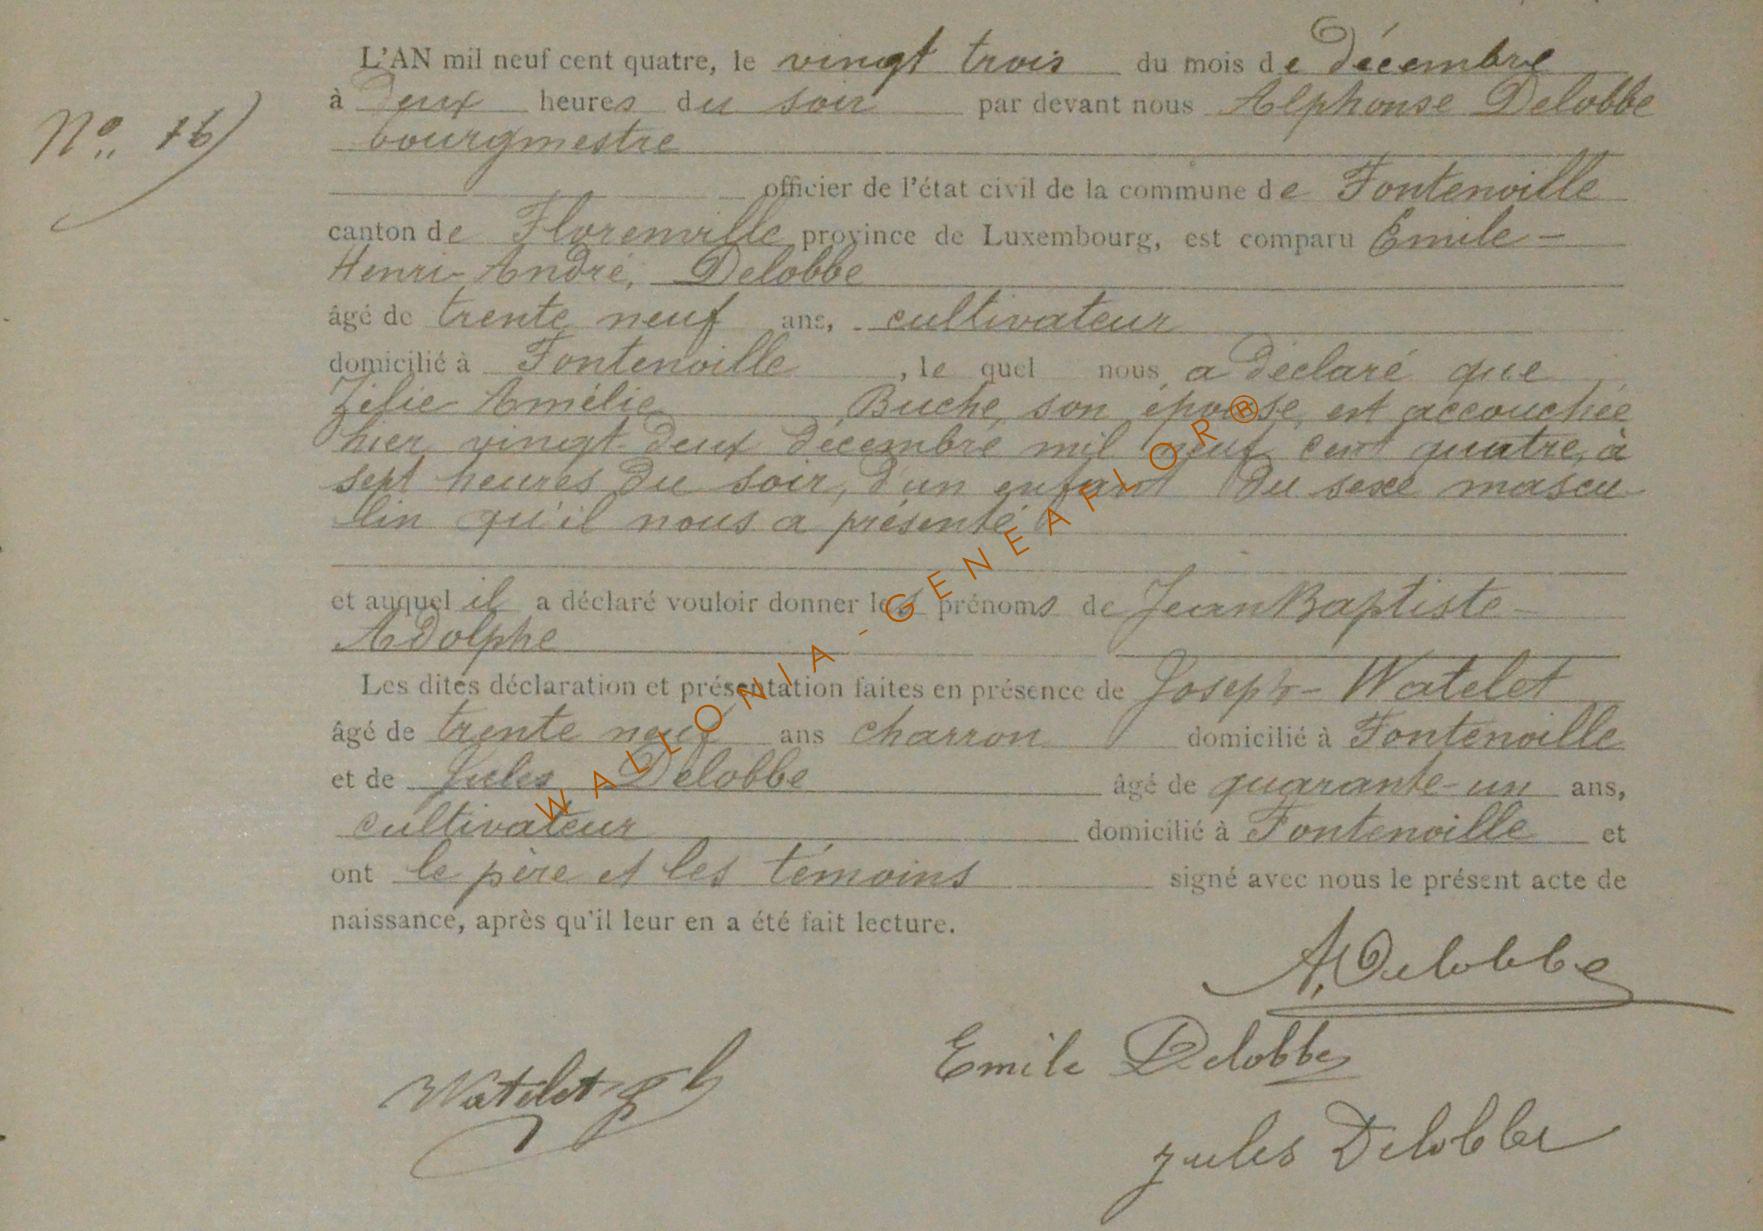 L'AN mil neuf cent quatre, le vingt trois du mois de décembre
No. 16) à deux heures du soir par devant nous Alphonse Delobbe
bourgmestre
officier de l'état civil de la commune de Fontenoille
canton de Florenville province de Luxembourg, est comparu Emile-
Henri-André, Delobbe
âgé de trente neuf ans, cultivateur
domicilié à Fontenoille, le quel nous a déclaré que
Zélie Amélie Buche, son épouse, est accouchée
hier vingt-deux décembre mil neuf cent quatre, à
sept heures du soir, d'un enfant du sexe mascu-
lin qu'il nous a présenté
et auquel il a déclaré vouloir donner les prénoms de Jean Baptiste-
Adolphe
Les dites déclaration et présentation faites en présence de Joseph-Watelet
âgé de trente neuf ans charron domicilié à Fontenoille
et de Jules Delobbe âgé de quarante-un ans,
cultivateur domicilié à Fontenoille et
ont le père et les témoins signé avec nous le présent acte de
naissance, après qu'il leur en a été fait lecture.
A. Delobbe
Emile Delobbe
Watelet
Jules Delobbe
WALLONIA - GENEAFLOR®